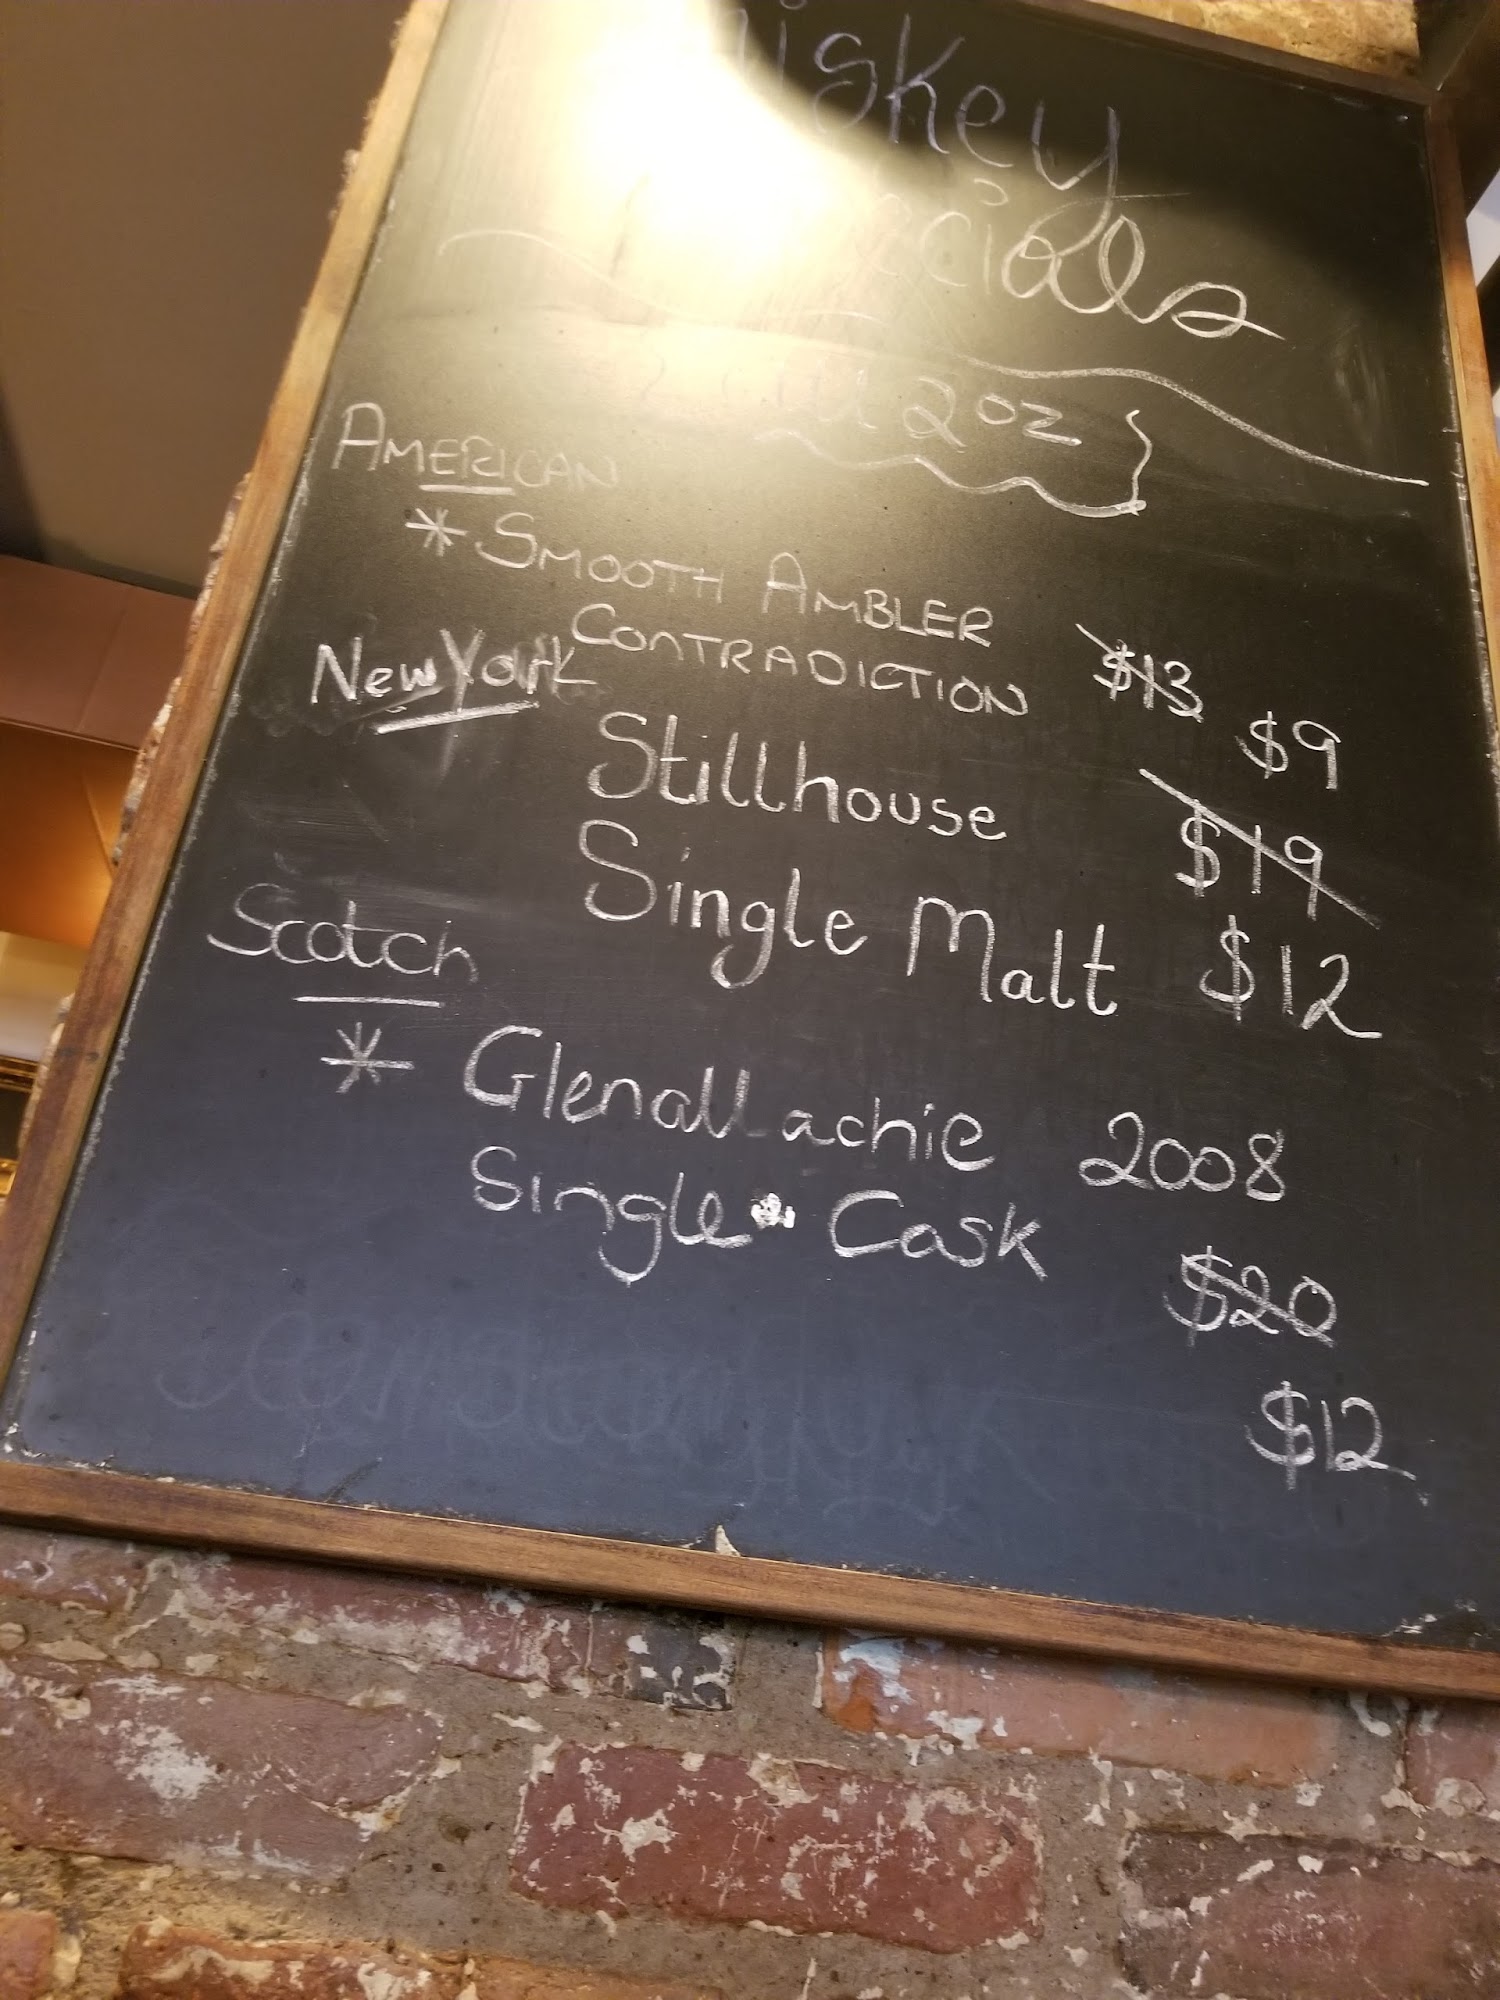 iskey
ecials
all 2oz
AMERICAN
* SMOOTH AMBLER
CONTRADICTION $13
$9
New York
Stillhouse $19
Single Malt $12
Scotch
* Glenallachie 2008
Single Cask $20
$12